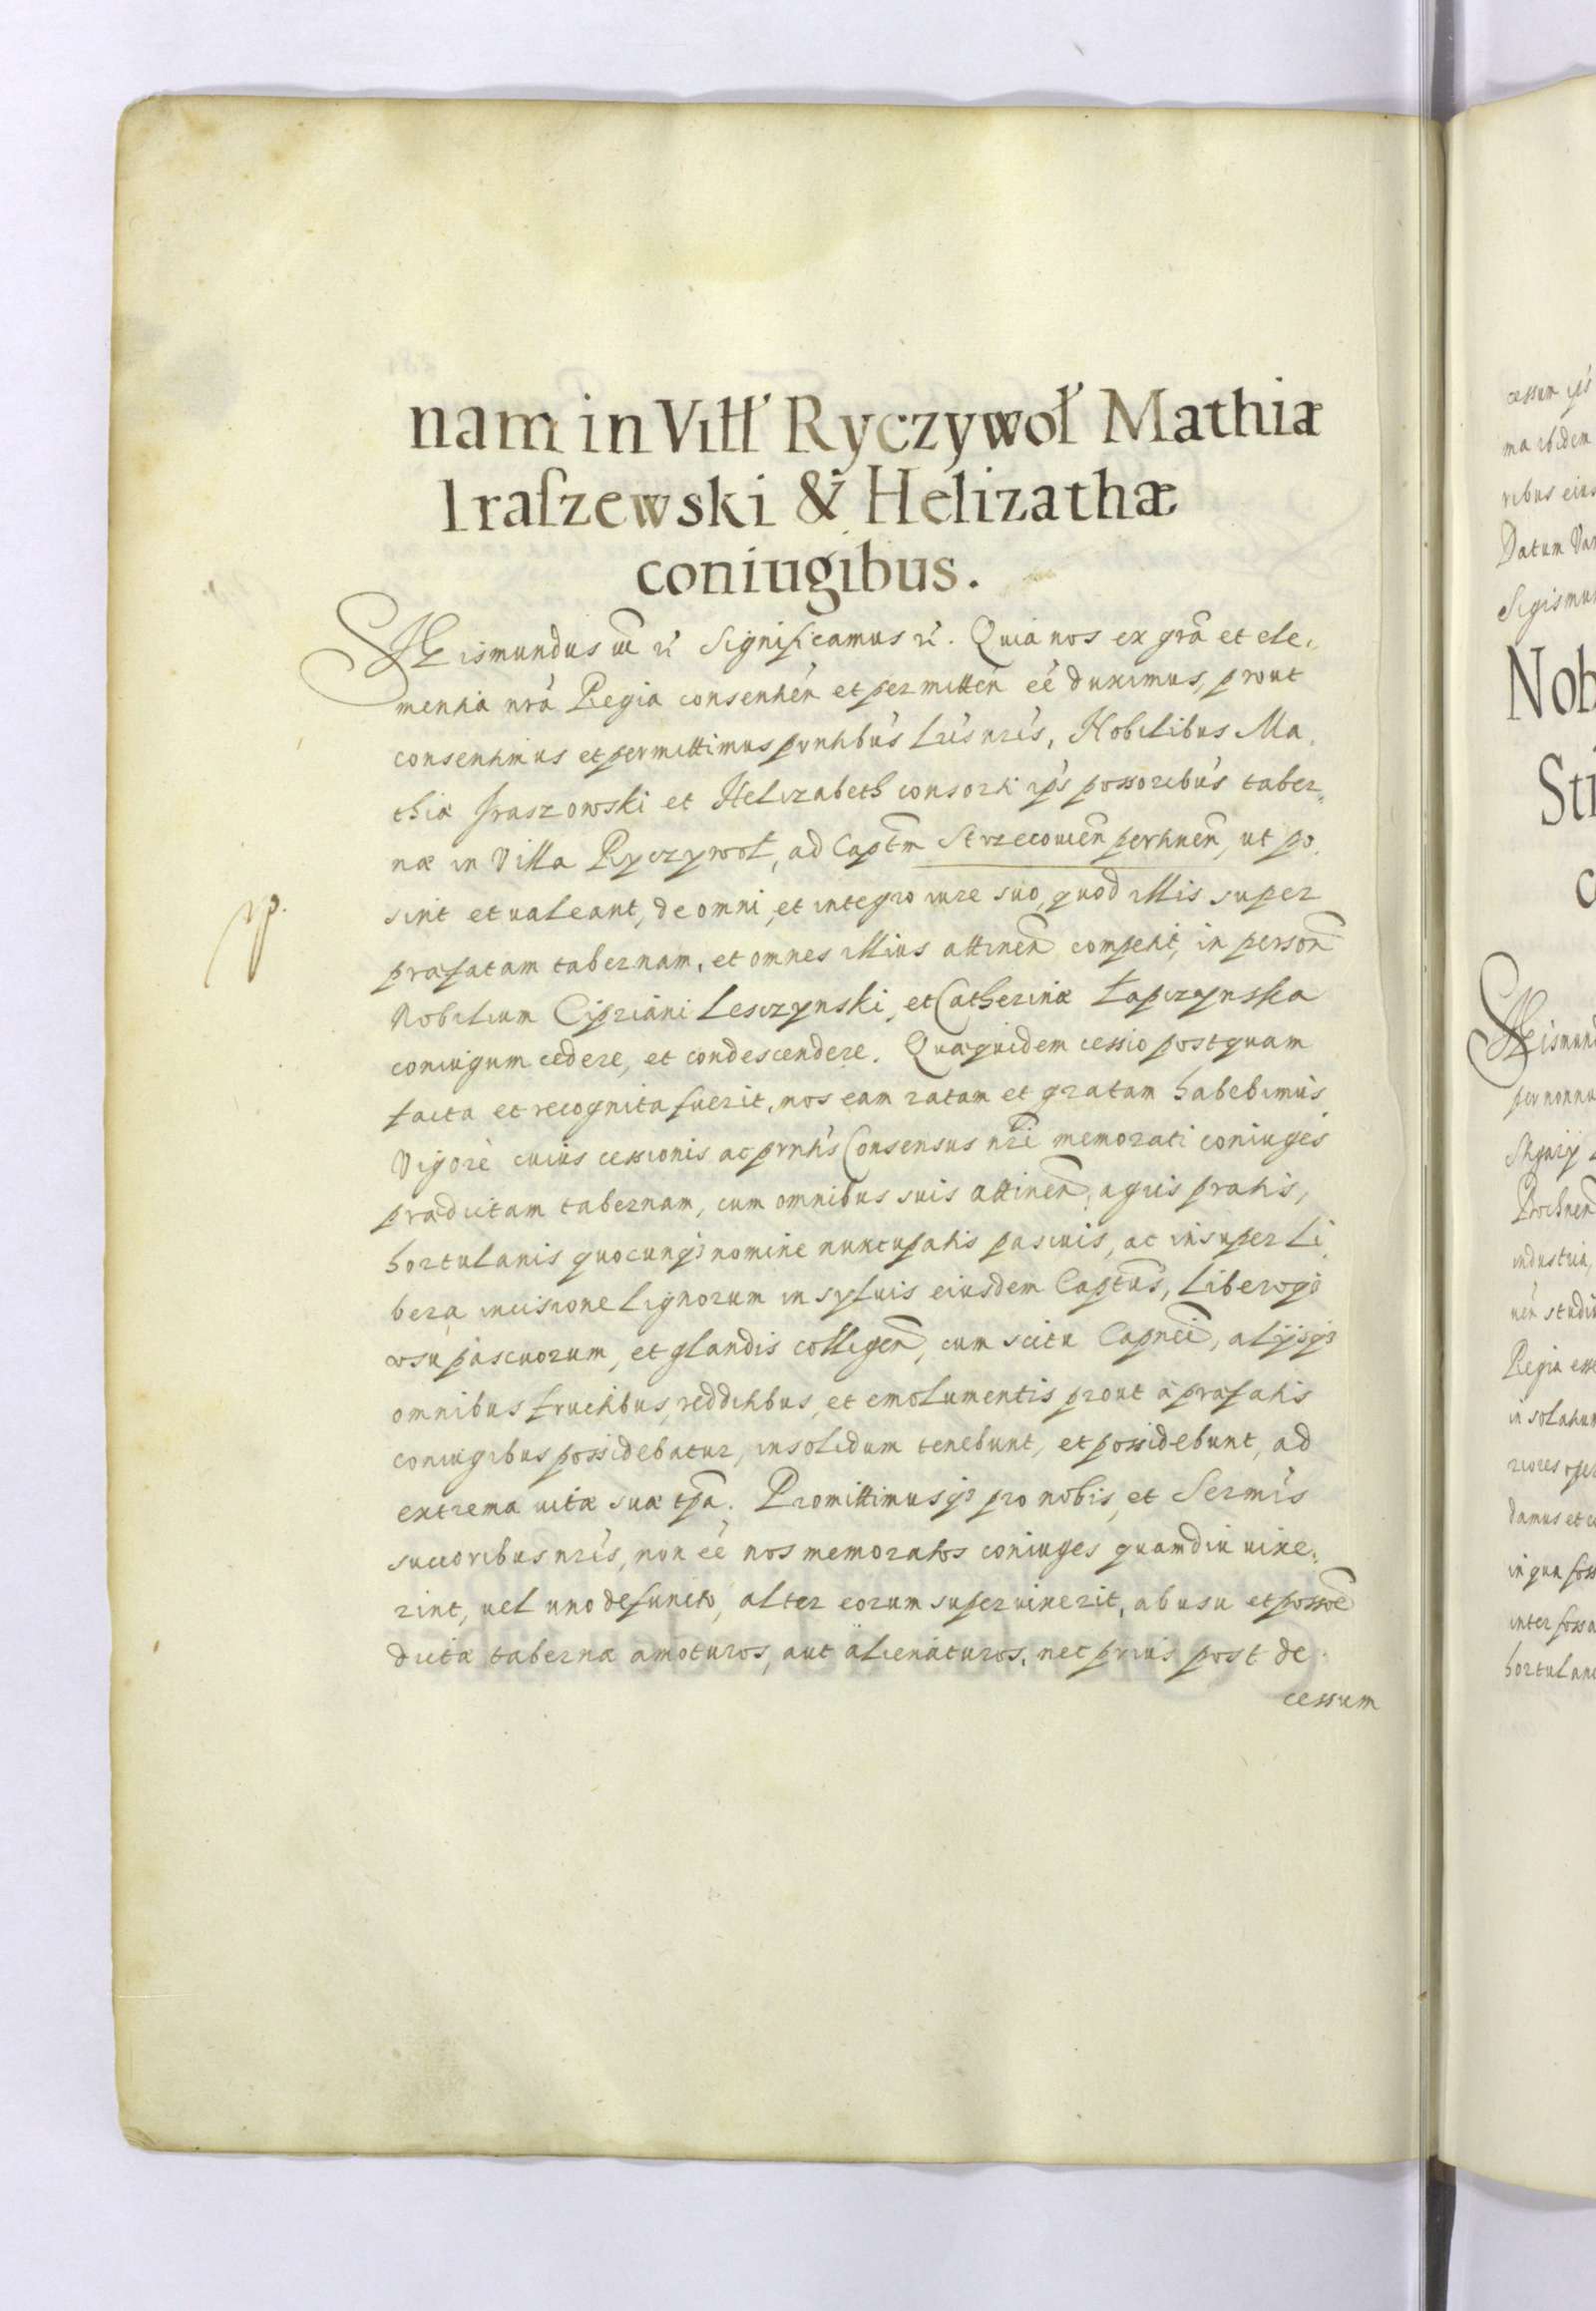 nam in Vill' Ryczywoł Mathiæ
Iraſzewski & Helizathæ
coniugibus.
Sigismundus etc Significamus etc. Quia nos ex grã et cle„
mentia nrã Regia consentiẽn et permitteñ eẽ duximus, prout
consentimus et permittimus pñtibus Lris nris, Nobilibus Ma„
thiæ Jraszowski et Helizabeth consorti ips possoribus taber„
næ in Villa Ryczywoł, ad Capt̃m Strzecouieñ pertineñ, ut po„
sint et ualeant, de omni, et integro iure suo, quod illis super
præfatam tabernam, et omnes illius attineñ competit, in person̄
Nobilium Cipriani Lesczynski, et Catherinæ Łapczynska
coniugum cedere, et condescendere. Quæquidem cessio postquam
facta et recognita fuerit, nos eam ratam et gratam habebimus
Vigore cuius cessionis ac prntis Consensus nri memorati coniuges
prædictam tabernam, cum omnibus suis attineñ, agris pratis,
hortulanis quocunq; nomine nuncupatis pascuis, ac insuper li
bera incisione lignorum in syluis eiusdem Captus, liberoq;
usu pascuorum, et glandis colligeñ, cum scitu Capnei, alijsq;
omnibus fructibus, redditibus, et emolumentis prout à præfatis
coniugibus possidebatur, insolidum tenebunt, et possidebunt, ad
extrema uitæ suæ tpã. Promittimusq; pro nobis, et Sermis
succoribus nris, non eẽ nos memoratos coniuges quamdiu uixe„
rint, uel uno defuncto, alter eorum superuixerit, ab usu et possoẽ
dictæ tabernæ amoturos, aut alienaturos, nec prius post de
cessum
cessum ips
ma ibidem
ribus eius
Datum Var
Sigismun
Nob
Sti
c
Sigismund
per nonnu
industria,
Regia esse
damus et c
in qua foss
inter fossa
hortulan